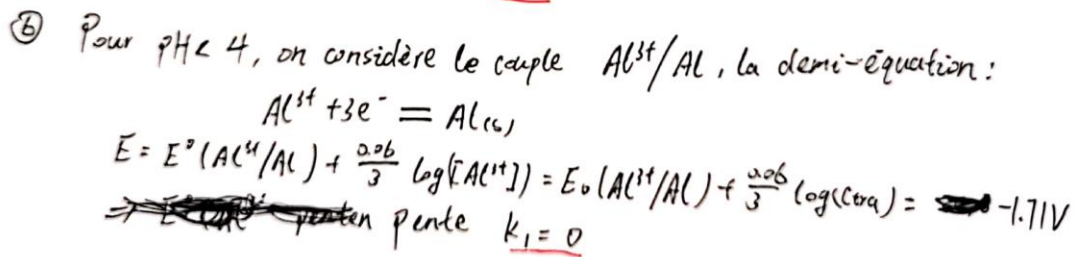 ⑥ Pour pH < 4, on considère le couple Al³⁺/Al, la demi-équation:
Al³⁺ + 3e⁻ = Al(s)
E = E°(Al³⁺/Al) + 0.06/3 log([Al³⁺]) = E₀(Al³⁺/Al) + 0.06/3 log(Ctra) = -1.71V
pente k₁ = 0